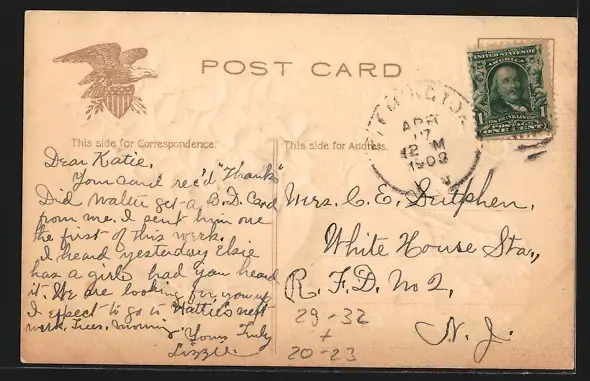 POST CARD
UNITED STATES OF AMERICA
1 1
FRANKLIN
POSTAGE
ONE CENT
APR
17
12 M
1909
N. J.
This side for Correspondence
This side for Address.
Dear Katie,
Your card rec'd "Thanks"
Did Walter get a B.D. Card
from me. I sent him one
the first of this week.
I heard yesterday Elsie
has a girl. had you heard
it. We are looking for you up
I expect to go to Hattie's next
week, Tues. morning.
Yours Truly
Lizzie.
Mrs. C. E. Sutphen,
White House Sta.,
R. F. D. No 2,
N. J.
29-32
+
20-23